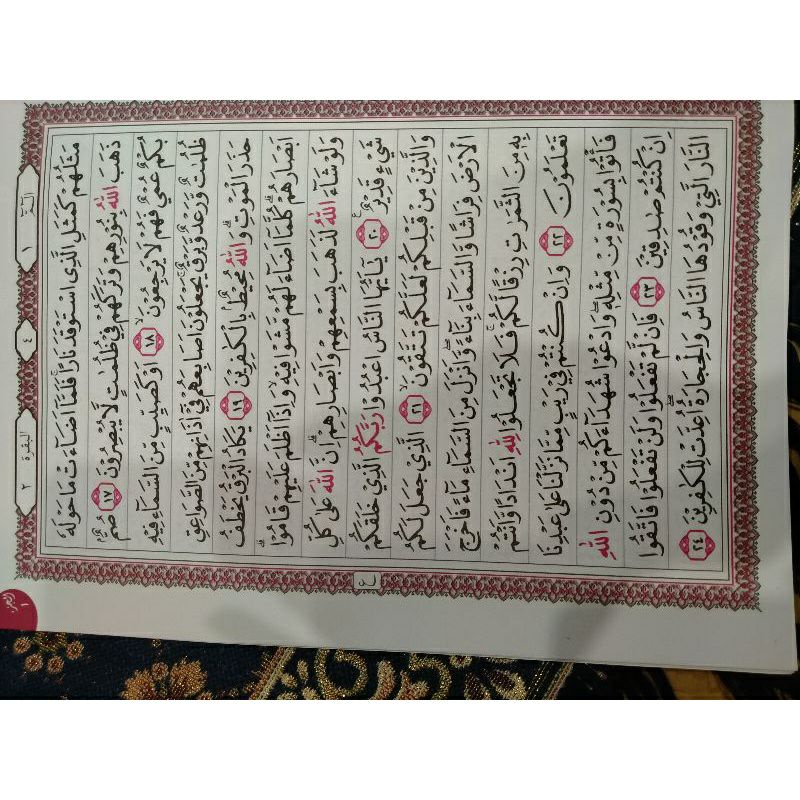 ٢ البقرة
٤
١ الٓمّٓ
مَثَلُهُمْ كَمَثَلِ الَّذِى اسْتَوْقَدَ نَارًا ۚ فَلَمَّآ اَضَآءَتْ مَا حَوْلَهٗ
ذَهَبَ اللّٰهُ بِنُوْرِهِمْ وَتَرَكَهُمْ فِيْ ظُلُمٰتٍ لَّا يُبْصِرُوْنَ ١٧ صُمٌّۢ
بُكْمٌ عُمْيٌ فَهُمْ لَا يَرْجِعُوْنَ ۙ ١٨ اَوْ كَصَيِّبٍ مِّنَ السَّمَآءِ فِيْهِ
ظُلُمٰتٌ وَّرَعْدٌ وَّبَرْقٌ ۚ يَجْعَلُوْنَ اَصَابِعَهُمْ فِيْٓ اٰذَانِهِمْ مِّنَ الصَّوَاعِقِ
حَذَرَ الْمَوْتِ ۗ وَاللّٰهُ مُحِيْطٌۢ بِالْكٰفِرِيْنَ ١٩ يَكَادُ الْبَرْقُ يَخْطَفُ
اَبْصَارَهُمْ ۗ كُلَّمَآ اَضَآءَ لَهُمْ مَّشَوْا فِيْهِ ۙ وَاِذَآ اَظْلَمَ عَلَيْهِمْ قَامُوْا ۗ
وَلَوْ شَآءَ اللّٰهُ لَذَهَبَ بِسَمْعِهِمْ وَاَبْصَارِهِمْ ۗ اِنَّ اللّٰهَ عَلٰى كُلِّ
شَيْءٍ قَدِيْرٌ ࣖ ٢٠ يٰٓاَيُّهَا النَّاسُ اعْبُدُوْا رَبَّكُمُ الَّذِيْ خَلَقَكُمْ
وَالَّذِيْنَ مِنْ قَبْلِكُمْ لَعَلَّكُمْ تَتَّقُوْنَ ۙ ٢١ الَّذِيْ جَعَلَ لَكُمُ
الْاَرْضَ فِرَاشًا وَّالسَّمَآءَ بِنَآءً ۖ وَّاَنْزَلَ مِنَ السَّمَآءِ مَآءً فَاَخْرَجَ
بِهٖ مِنَ الثَّمَرٰتِ رِزْقًا لَّكُمْ ۚ فَلَا تَجْعَلُوْا لِلّٰهِ اَنْدَادًا وَّاَنْتُمْ
تَعْلَمُوْنَ ٢٢ وَاِنْ كُنْتُمْ فِيْ رَيْبٍ مِّمَّا نَزَّلْنَا عَلٰى عَبْدِنَا
فَأْتُوْا بِسُوْرَةٍ مِّنْ مِّثْلِهٖ ۖ وَادْعُوْا شُهَدَآءَكُمْ مِّنْ دُوْنِ اللّٰهِ
اِنْ كُنْتُمْ صٰدِقِيْنَ ٢٣ فَاِنْ لَّمْ تَفْعَلُوْا وَلَنْ تَفْعَلُوْا فَاتَّقُوا
النَّارَ الَّتِيْ وَقُوْدُهَا النَّاسُ وَالْحِجَارَةُ ۖ اُعِدَّتْ لِلْكٰفِرِيْنَ ٢٤
ع
١